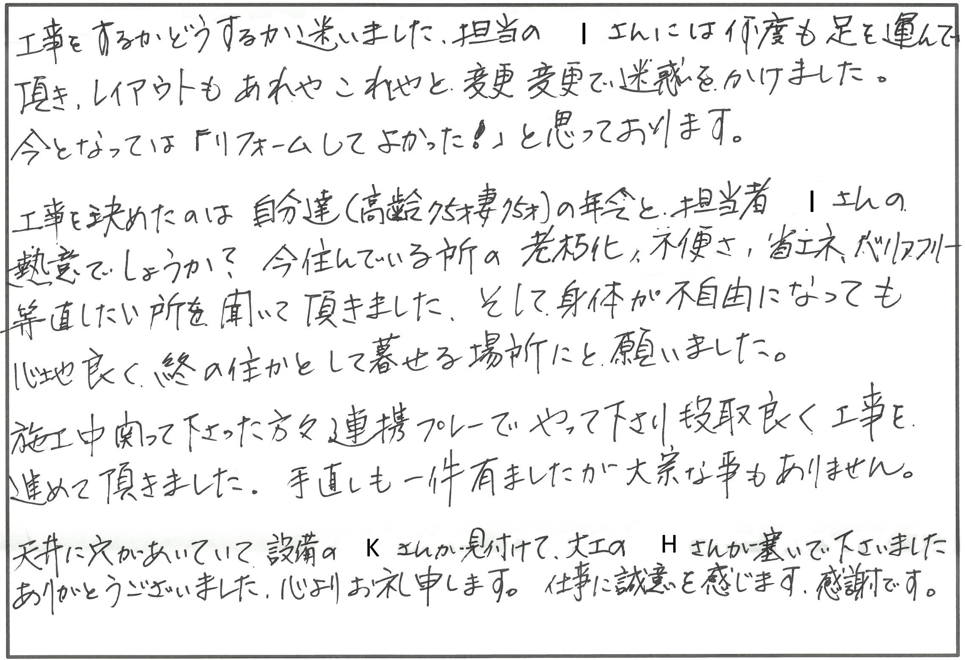 工事をするかどうするか迷いました、担当の I さんには何度も足を運んで
頂き、レイアウトもあれやこれやと、変更変更で迷惑をかけました。
今となっては「リフォームしてよかった!」と思っております。
工事を決めたのは自分達(高齢75才妻75才)の年令と、担当者 I さんの
熱意でしょうか? 今住んでいる所の老朽化、不便さ、省エネ、バリアフリー
等直したい所を聞いて頂きました、そして、身体が不自由になっても
心地良く、終の住かとして暮せる場所にと、願いました。
施工中関って下さった方々連携プレーでやって下さり段取良く工事を
進めて頂きました。手直しも一件有ましたが大宗な事もありません。
天井に穴があいていて、設備の K さんが見付けて、大工の H さんが塞いで下さいました
ありがとうございました、心よりお礼申します。仕事に誠意を感じます、感謝です。